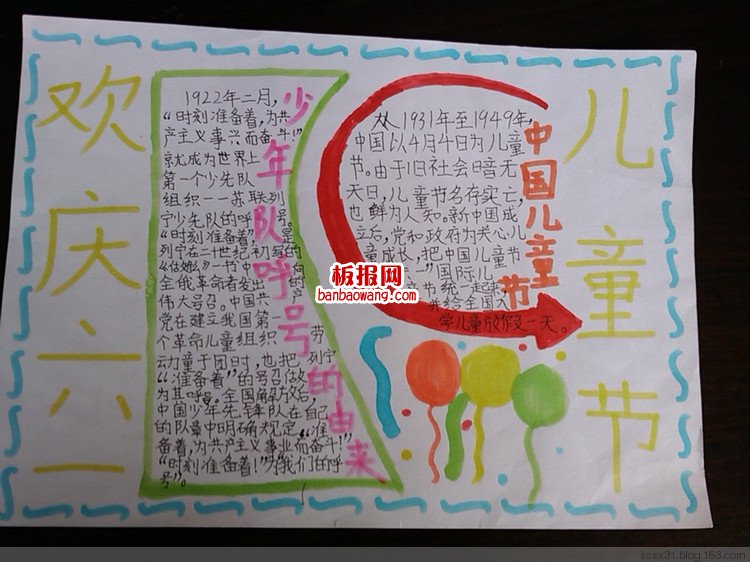 欢庆六一
少年队呼号的由来
1922年二月，
“时刻准备着，为共
产主义事兴而奋斗！”
就成为世界上
第一个少先队
组织一一苏联列
宁少先队的呼号。
“时刻准备着”，是
列宁在二十世纪初写的
一书中向
全俄革命者发出的
伟大号召。中国共产
党在建立我国第一
个革命儿童组织 劳
动童子团时，也把列宁
“准备着”的号召做
为其呼号。全国解放后，
中国少年先锋队在自己
的队章中明确规定“准
备着，为共产主义事业而奋斗！”
“时刻准备着！”为我们的呼
号”。
中国儿童节
从1931年至1949年，
中国以4月4日为儿童
节。由于旧社会暗无
天日，儿童节名存实亡，
也鲜为人知。新中国成
立后，党和政府为关心儿
童成长，把中国儿童节
“国际儿
节统一起来
并给全国入
学儿童放假一天。
儿童节
板报网
banbaowang.com
scsx31.blog.163.com